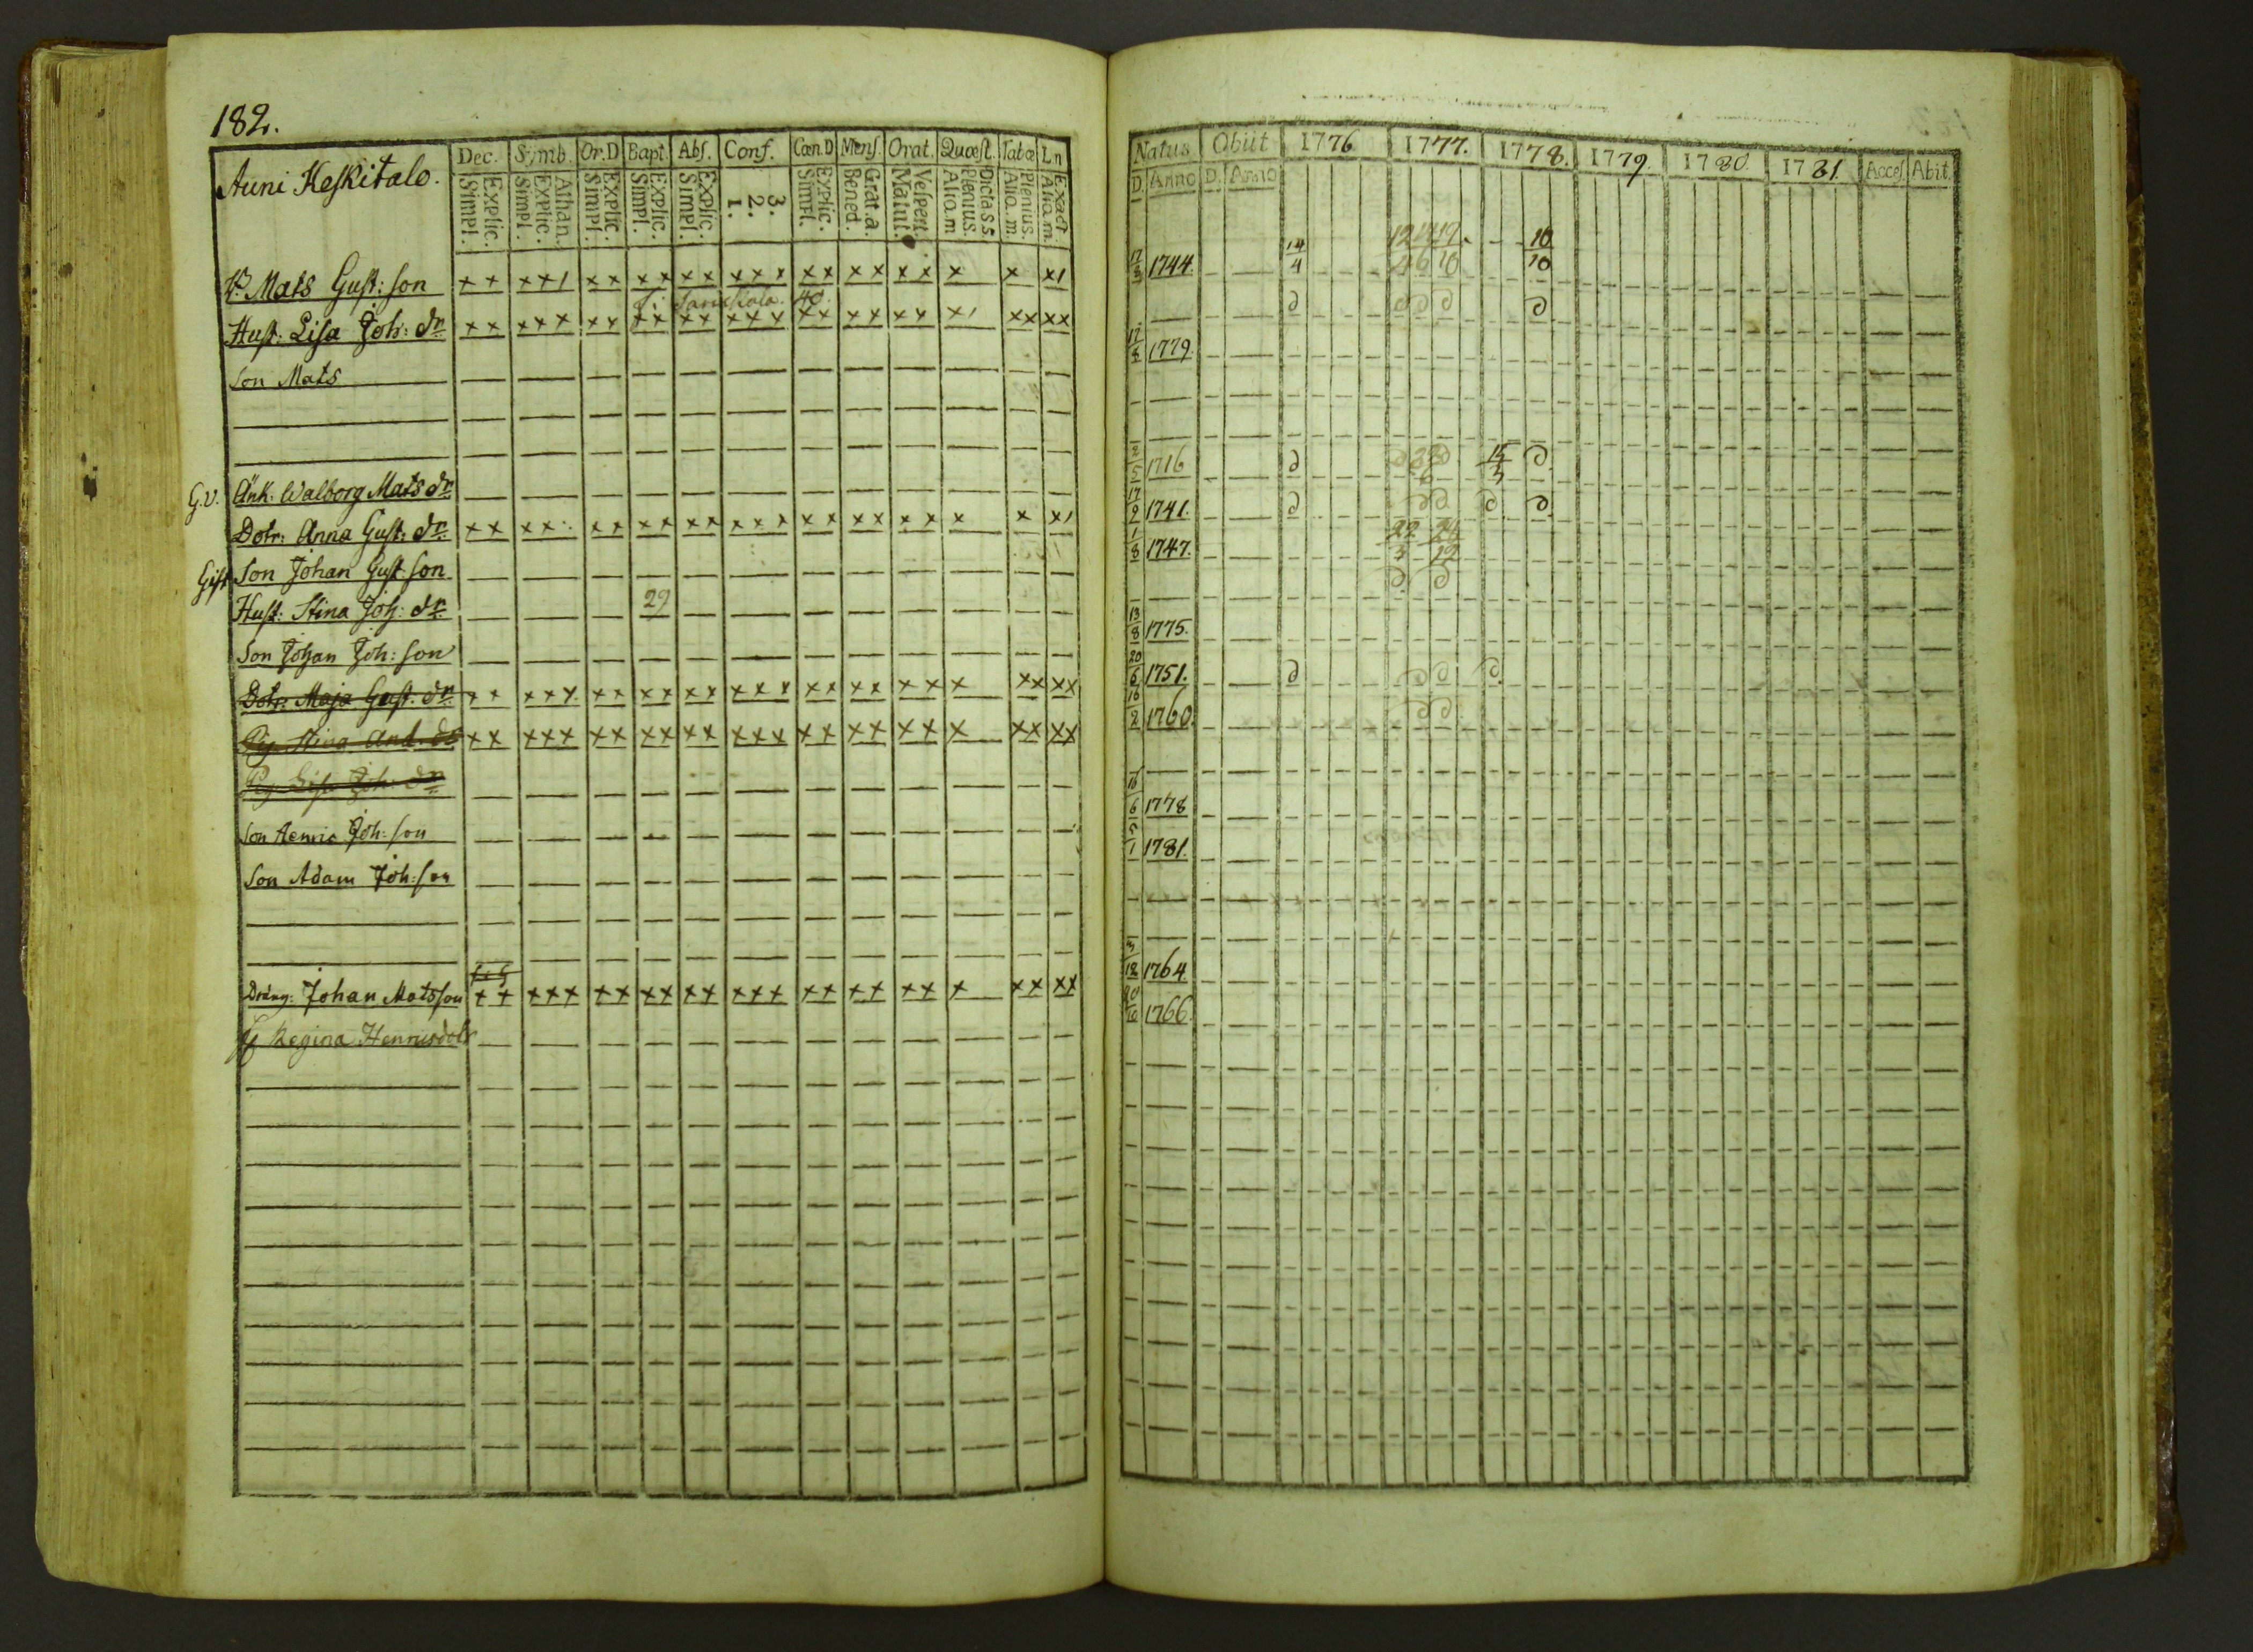 182.
Auni Keskitalo.
Dec. Symb. Or.D Bapt. Abs. Conf. Cœn.D Mens. Orat. Quæst. Tabœ Ln
Simpl. Explic. Simpl. Explic. Athan. Simpl. Explic. Simpl. Explic. Simpl. Explic. 1. 2. 3. Simpl. Explic. Bened. Grat.a. Matut. Vespert. Alio.m Plenius. Dicta S S. Alio.m. Plenius. Alio.m. Exact
Mats Gust: son ×× ××1 ×× ×× ×× ××× ×× ×× ×× × × ×1
40.
Hust: Lisa Joh: dr ×× ××× ×× ×× ×× ××× ×× ×× ×× × ×× ××
Son Mats
G.V. Änk: Walborg Mats dr
Dotr: Anna Gust: dr ×× ×× ×× ×× ×× ××× ×× ×× ×× × × ×
Gift Son Johan Gust: son
Hust: Stina Joh: dr 29
Son Johan Joh: son
Dotr: Maja Gust: dr ×× ××× ×× ×× ×× ××× ×× ×× ×× × ×× ××
Pig. Stina And. dr ×× ××× ×× ×× ×× ××× ×× ×× ×× × ×× ××
Pig. Lisa Joh: dr
Son Henric Joh: son
Son Adam Joh: son
Dräng: Johan Matsson ×× ××× ×× ×× ×× ××× ×× ×× ×× × ×× ××
Regina Henricsdotr
Natus Obiit 1776 1777. 1778. 1779. 1780. 1781. Acces. Abit.
D. Anno D. Anno
17/3 1744. 14/4 10/10
1779.
2/5 1716 15/3
17/2 1741.
1/8 1747. 22/3
13/8 1775.
20/6 1751.
16/2 1760.
16/6 1778
1781.
3/12 1764.
1766.